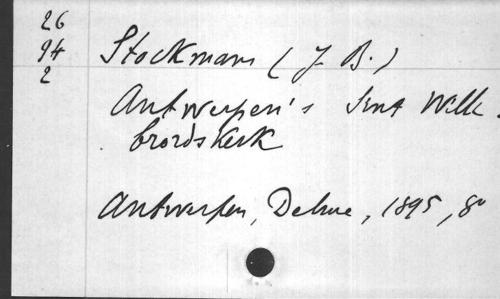 26
94
2
Stockmans (J. B.)
Antwerpen's Sint Wille
brordskerk
Antwerpen, Delrue, 1895, 8°